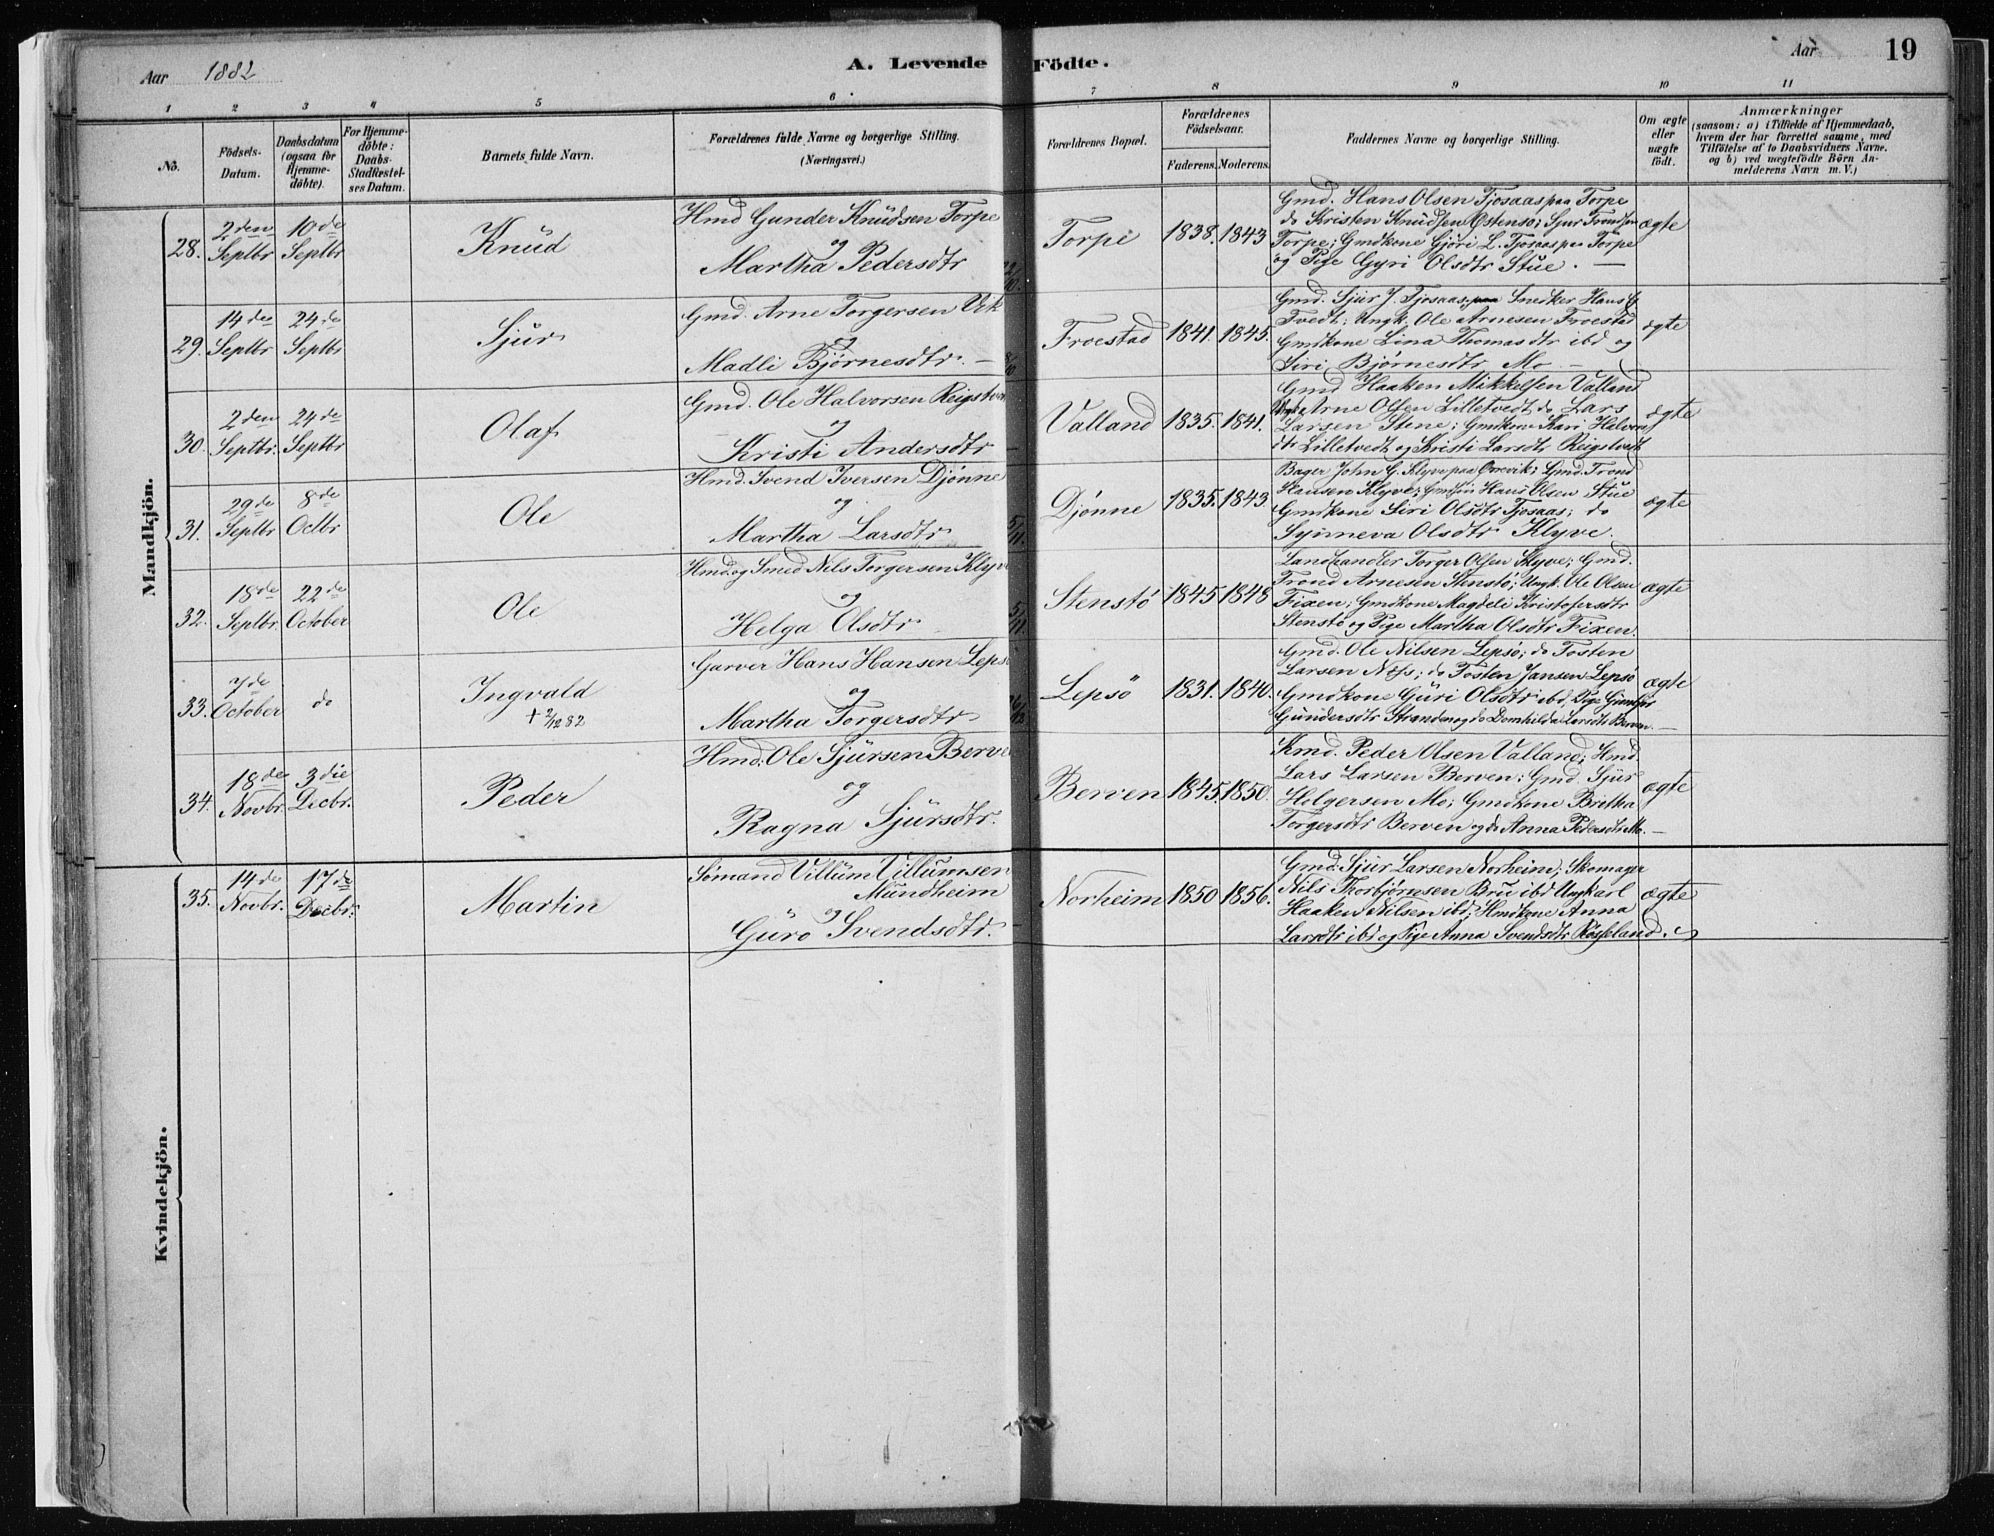 Aar 1882
A. Levende Födte.
Aar 19
1 2 3 4 5 6 7 8 9 10 11
No.
Födsels-Datum.
Daabsdatum (ogsaa for Hjemme-döbte).
For Hjemme-döbte: Daabs-Stadfæstel-ses Datum.
Barnets fulde Navn.
Forældrenes fulde Navne og borgerlige Stilling. (Næringsvei.)
Forældrenes Bopæl.
Forældrenes Födselsaar.
Faderens. Moderens.
Faddernes Navne og borgerlige Stilling.
Om ægte eller uægte födt.
Anmærkninger
(saasom: a) i Tilfælde af Hjemmedaab,
hvem der har forrettet samme, med
Tilföielse af to Daabsvidners Navne.
og b) ved uegtefödte Börn An-
melderens Navn m. V.)
Mandkjön.
28. 2den Septbr 10de Septbr Knud
Hmd Gunder Knudsen Torpe
og
Martha Pedersdtr
Torpe 1838. 1843
Gmd. Hans Olsen Tjosaas paa Torpe
do Kristen Knudsen Östensö; Sjur
Torpe; Gmdkone Gjöri L. Tjosaas paa Torpe
og Pige Gyri Olsdtr Stue.
ægte
29. 14de Septbr 24de Septbr Sjur
Gmd. Arne Torgersen
og
Madli Bjørnesdtr.
Froestad 1841. 1845.
Gmd. Sjur J. Tjosaas, Snedker Hans
Tvedt; Ungk. Ole Arnesen Froestad
Gmdkone Lina Thomasdtr ibd og
Siri Bjørnesdtr Mo
ægte
30. 2den Septbr. 24de Septbr Olaf
Gmd. Ole Halvorsen
og
Kristi Andersdtr
Valland 1835. 1841.
Gmd Haaken Mikkelsen Valland
Ungk. Arne Olsen Lilletvedt, do Lars
Larsen Stene; Gmdkone Kari
Lilletvedt og Kristi Larsdtr Reigstvedt
ægte
31. 29de Septbr 8de Octbr Ole
Hmd. Svend Iversen Djønne
og
Martha Larsdtr
5/11.
Djønne 1835. 1843
Bager John G. Klyve paa; Gmd. Trond
Hansen Klyve; Hans Olsen Stue
Gmdkone Siri Olsdtr Tjosaas; do
Synneva Olsdtr Klyve.
ægte
32. 18de Septbr. 22de October Ole
Hmd. og Smed Nils Torgersen Klyve
og
Helga Olsdtr
5/11.
Stenstø 1845 1848
Landhandler Torger Olsen Klyve; Gmd.
Trond Arnesen Stenstø; Ungk. Ole Olsen
Fixen; Gmdkone Magdeli Kristofersdtr
Stenstø og Pige Martha Olsdtr Fixen.
ægte
33. 7de October do Ingvald
+ 2/12 82
Garver Hans Hansen Lepsö
og
Martha Torgersdtr
Lepsö 1831. 1840.
Gmd. Ole Nilsen Lepsö; do Tosten
Larsen Næs; do Tosten Jansen Lepsö
Gmdkone Guri Olsdtr ibd, Pige
Gundersdtr og do Domhilda Larsdtr Berven
ægte
34. 18de Novbr. 3die Decbr. Peder
Hmd. Ole Sjursen Berven
og
Ragna Sjursdtr.
Berven 1845. 1850.
Kmd. Peder Olsen Valland; Hmd.
Lars Larsen Berven; Gmd. Sjur
Holgersen Mo; Gmdkone Britha
Torgersdtr Berven og do Anna Pedersdtr Mo.
ægte
Kvindekjön.
35. 14de Novbr. 17de Decbr. Martin
Sømand Villum Villumsen
Mundheim
og
Guro Svendsdtr.
Norheim 1850 1856.
Gmd. Sjur Larsen Norheim, Skomager
Nils Thorbjørnsen Bru ibd Ungkarl
Haaken Nilsen ibd; Hmdkone Anna
Larsdtr ibd og Pige Anna Svendsdtr
ægte